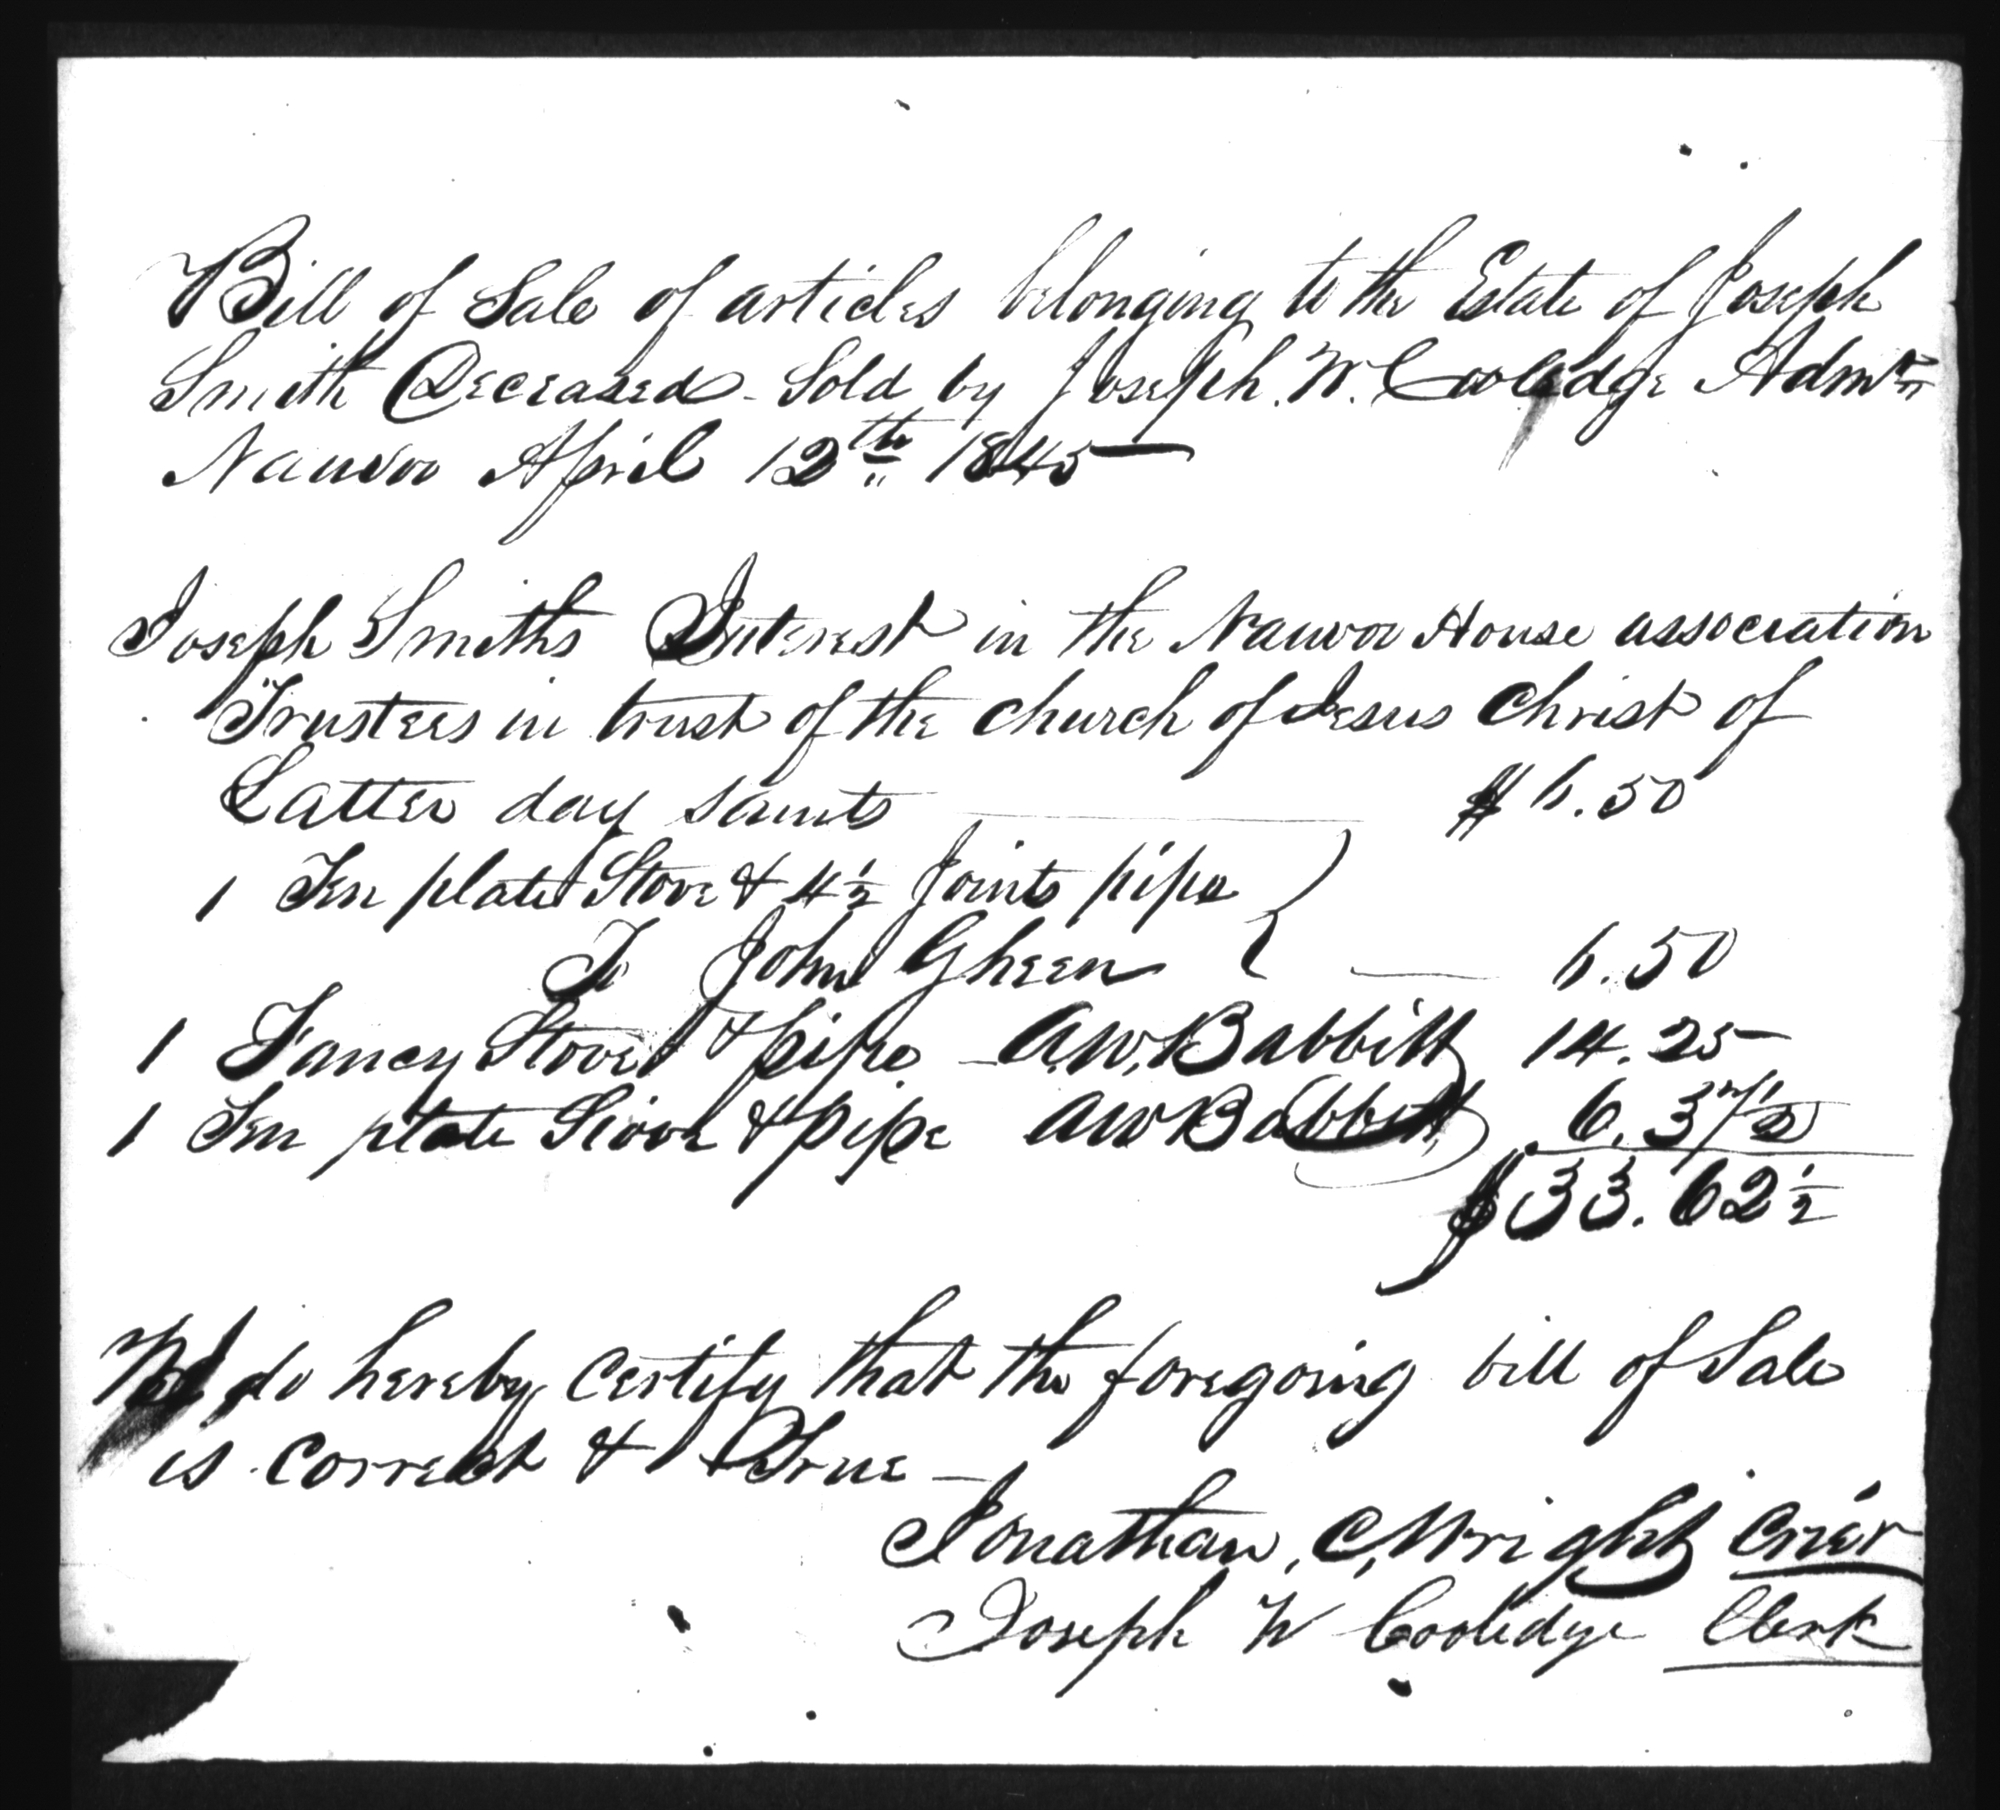 Bill of Sale of articles belonging to the Estate of Joseph
Smith Deceased - Sold by Joseph. W. Coolidge Admtr
Nauvoo April 12th 1845—
Joseph Smiths Interest in the Nauvoo House association
Trustees in trust of the church of Jesus Christ of
Latter day saints — $ 6.50
1 Ten plate Stove & 4½ Joints pipe
To John Gheen — 6.50
1 Fancy Stove & pipe - A.W. Babbitt 14.25
1 Ten plate Stove & pipe A W Babbitt 6.37½
$33.62½
We do hereby certify that the foregoing bill of Sale
is correct & True —
Jonathan, C, Wright Crier
Joseph W Coolidge Clerk